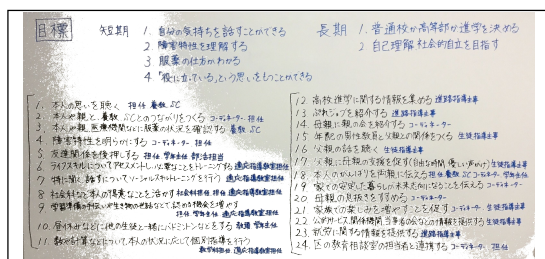 目標
短期 1. 自分の気持ちを話すことができる
2 障害特性を理解する
3 服薬の仕方がわかる
4 「役に立っている」という思いをもつことができる
長期 1. 普通校か高等部か進学を決める
2 自己理解 社会的自立を目指す
1. 本人の思いを聴く 担任 養教 SC
2. 本人や親と、養教、SCとのつながりをつくる コーディネーター 担任
3. 本人や親、医療機関などに服薬の状況を確認する 養教 SC
4. 障害特性を明らかにする コーディネーター
5. 友達関係を後押しする 担任 学年主任 部活担当
6. ライフスキルについてアセスメントし必要なことをトレーニングする 適応指導教室担任
7. 特に聞く、話すについてソーシャルスキルトレーニングを行う 適応指導教室担任
8. 社会科など本人の得意なことを活かす 社会科担任 担任 適応指導教室担任
9. 学習準備の手伝いや生き物の世話などして、認める機会を増やす
担任 学年主任 適応指導教室担任
10. 昼休みなどに他の生徒と一緒にバドミントンなどをする 教頭 学年主任
11. 数や計算などについて、本人の状況に応じて個別指導を行う
教科担任 適応指導教室担任
12 高校進学に関する情報を集める 進路指導主事
13. ジョブを紹介する 進路指導主事
14. 母親に親の会を紹介する コーディネーター
15. 年配の男性教員と父親との関係をつくる 生徒指導主事
16. 父親の話を聴く 生徒指導主事
17. 父親に母親の支援を促す(自由な時間 優しい声かけ) 生徒指導主事
18. 本人のがんばりを両親に伝える 担任 養教 SC コーディネーター
19. 家での安定した暮らしが未来を向になることを伝える コーディネーター
20. 母親の息抜きをすすめる コーディネーター
21. 家族での楽しみを増やすことを促す コーディネーター
22. 公的サービス・関係機関 当事者の会などの情報を提供する 生徒指導主事
23. 就労に関する情報を提供する 進路指導主事
24. 区の教育相談室の担当者と連携する コーディネーター 担任